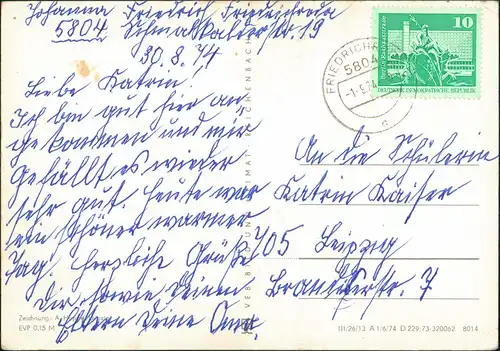 Johanna Friedrich Friedrichroda
5804 Schmalkalder str. 19
30.8.74
Liebe Katrin!
Ich bin gut hier an
gekommen und mir
gefällt es wieder
sehr gut. Heute war
ein schöner warmer
Tag. Herzliche Grüße
Dir sowie Deinen
Eltern Deine Oma.
10
DEUTSCHE DEMOKRATISCHE REPUBLIK
5804
-1-9.74
An die Schülerin
Katrin Kaiser
705 Leipzig
str. 7
Zeichnung:
EVP 0,15 M
VEB BILD UND HEIMAT REICHENBACH
III/26/13 A 1/6/74 D 229/73-320062 8014